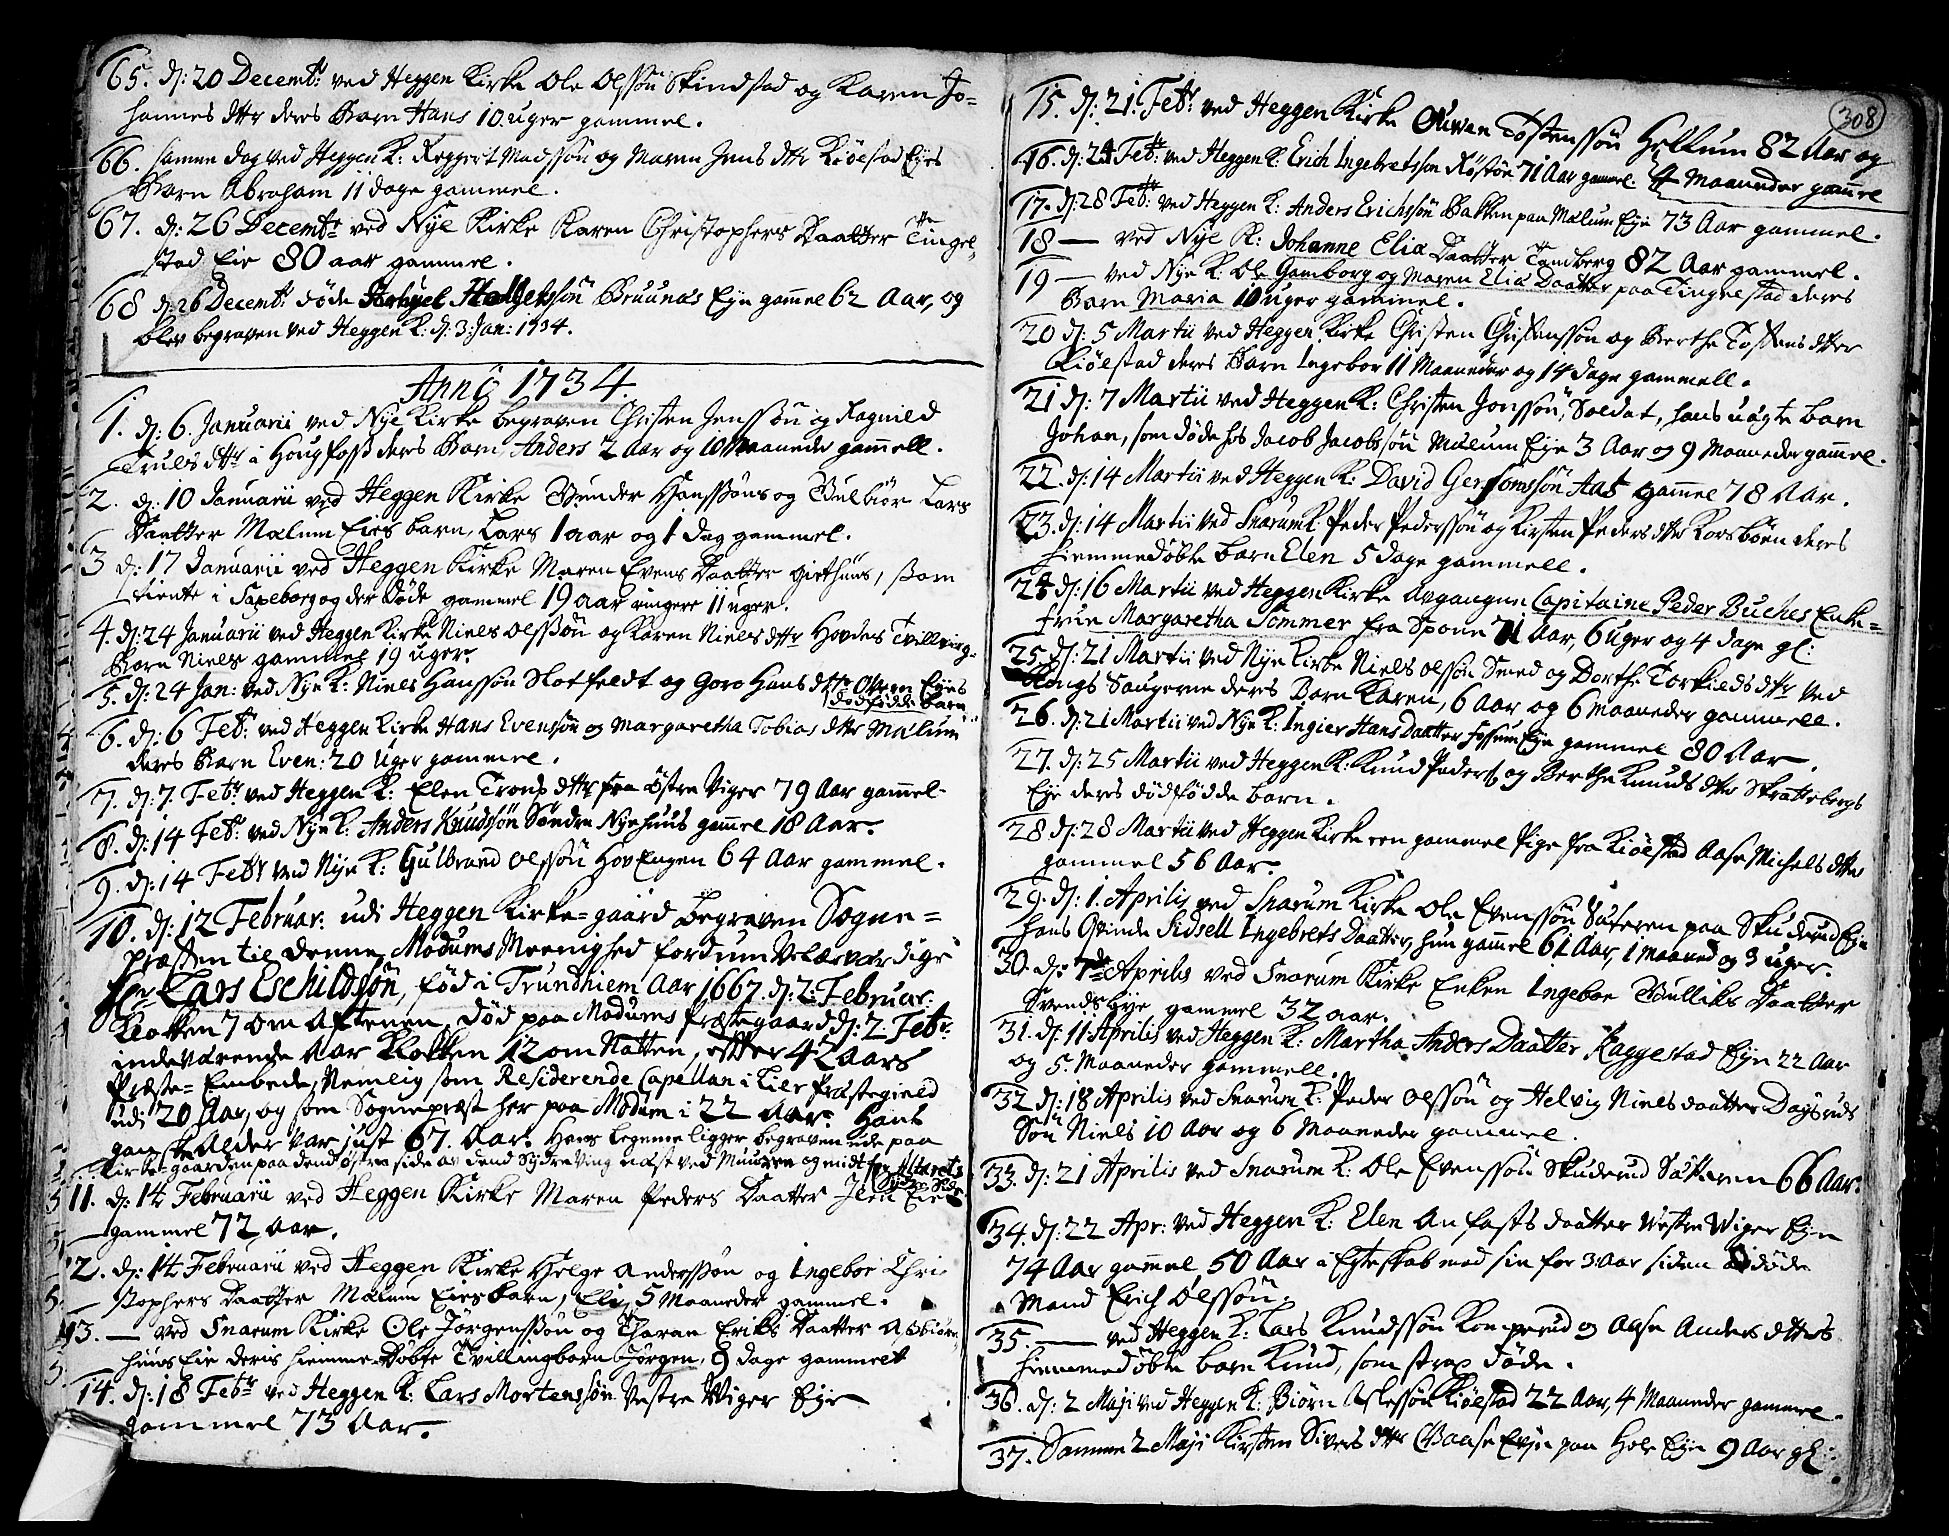 65. d: 20 Decembr: ved Heggen Kirke Ole Olssøn Skindstad og Karen Jo=
hannes dttr deres Barn Hans 10. uger gammel.
66. samme dag ved Heggen K: Reggert Madssøn og Maren Jens dttr Kiølstad Eyes
Barn Abraham 11 dage gammel.
67. d: 26 Decembr ved Nye Kirke Karen Christophers Daatter Tingel
stad Eie 80 aar gammel.
68 d: 26 Decembr døde Halgerssøn Bruunas Eye gamel 62 Aar, og
blev begraven ved Heggen K: d: 3 Jan: 1734.
Anno 1734.
1. d: 6. Januarii ved Nye Kirke begraven Christen Jenssøn og Ragnild
Truls dttr i Hougfoss deres Barn Anders 2 Aar og 10 Maaneder gamell.
2. d: 10 Januarii ved Heggen Kirke Gunder Hanssøns og Gulbiør Lars
Daatter Mælum Eies barn, Lars 1 aar og 1 dag gammel.
3 d: 17 Januarii ved Heggen Kirke Maren Evens Daatter Giethuus, som
tiente i og der døde gammel 19 aar ringere 11 uger.
4. d: 24 Januarii ved Heggen Kirke Niels Olssøn og Karen Niels dttr Hovdes Tvilling-
Barn Niels gammel 19 uger.
5. d: 24 Jan: ved Nye K: Niels Hanssøn Slotfeldt og Goro Hans dttr Eyes
dødfødde Barn
6. d: 6 Febr: ved Heggen Kirke Hans Evenssøn og Margaretha Tobias dttr Mælum
deres Barn Even: 20 Uger gammel.
7. d: 7. Febr ved Heggen K: Elen Trons dttr fra Østre Viger 79 Aar gammel.
8. d: 14 Febr: ved Nye K: Anders Knudssøn Søndre Nyehuus gamel 18 Aar.
9. d: 14 Febr ved Nye K: Gulbrand Olssøn HovEngen 64 Aar gammel.
10. d: 12 Februar: udi Heggen Kirke=gaard Begraven Sogne=
præsten til denne Modums Meenighed fordum Velærværdige
Hr Lars Eschildsøn, fød i Trundhiem Aar 1667. d: 2. Februar:
Klokken 7 om Aftenen, død paa Modums Præstegaard d: 2. Febr.
indeværende Aar Klokken 12 om Natten, efter 42 Aars
Præste=Embede, Nemlig som Residerende Capellan i Lier Præstegield
udi 20 Aar, og som Sognepræst her paa Modum i 22 Aar. Hans
ganske Alder var just 67. Aar. Hans legeme ligger begraven ude paa
Kirke-gaarden paa dend østre side av dend Sydre Ving næst ved Muuren og midt for Alterets
Sydre Side
11. d: 14 Februarii ved Heggen Kirke Maren Peders Daatter Eie
gammel 72 aar.
12. d: 14 Februarii ved Heggen Kirke Helge Anderssøn og Ingebor Chri-
stophers Daatter Mælum Eies Barn, Eli, 5 Maaneder gammel.
13. — ved Snarum Kirke Ole Jørgenssøn og Tharan Eriks Daatter
huus Eie deris hiemme-døbte Tvillingbarn Jørgen, 9 dage gammelt
14. d: 18 Febr ved Heggen K: Lars Mortenssøn Vestre Wiger Eye
gammel 73 Aar.
308
15. d: 21. Febr: ved Heggen Kirke Ouwen Tostenssøn Hellum 82 Aar og
4 Maaneder gamel
16. d: 24 Febr: ved Heggen K: Erich Ingebretssøn Røstøn 71 Aar gamel.
17. d: 28 Febr: ved Heggen K: Anders Erichssøn Bakken paa Mælum Eye 73 Aar gammel.
18 — ved Nye K: Johanne Eliæ Daatter Tandberg 82 Aar gammel.
19 — ved Nye K: Ole Gamborg og Maren Eliæ Daatter paa Tingelstad deres
Barn Maria 10 uger gammel.
20 d: 5 Martii ved Heggen Kirke Christen Christenssøn og Berthe Tostens dtter
Kiølstad deres Barn Ingebor 11 Maaneder og 14 dage gammell.
21 d: 7 Martii ved Heggen K: Christen Jonssøn, Soldat, hans uægte barn
Johan, som døde hos Jacob Jacobssøn Mælum Eye 3 Aar og 9 Maaneder gamel.
22. d: 14 Martii ved Heggen K: David Gerssomssøn Aas gamel 78 Aar.
23. d: 14 Martii ved Snarum K: Peder Pederssøn og Kirsten Peders dttr Korsbøen deres
hiemmedøbte barn Elen 5 dage gammell.
24 d: 16 Martii ved Heggen Kirke Avgangne Capitaine Peder Buches Enke=
frue Margaretha Sommer fra Spone 71 Aar, 6 uger og 4 dage gl:
25. d: 21 Martii ved Nye Kirke Niels Olssøn Smed og Dorthe Torkields dttr ved
Kongs Saugerne deres Barn Karen, 6 Aar og 6 maaneder gammell.
26. d: 21 Martii ved Nye K: Ingier Hans Daatter Fossum Eye gammel 80 Aar.
27. d: 25 Martii ved Heggen K: Knud Peders og Berthe Knuds dtter Skrattebergs
Eye deres dødfødde barn.
28 d: 28 Martii ved Heggen Kirke een gammel Pige fra Kiølstad Aase Michels dtter
gammel 56 Aar.
29. d: 1. Aprilis ved Snarum Kirke Ole Evenssøn Saateren paa Skuderud Eye
hans Qvinde Sidsell Ingebrets Daatter, hun gamel 61 Aar, 1 maaned og 3 uger.
30. d: 7de Aprilis ved Snarum Kirke Enken Ingebor Gulliks Daatter
Svends Eye gammel 32 aar.
31. d: 11. Aprilis ved Heggen K: Martha Anders Daatter Raggestad Eye 22 Aar
og 5. Maaneder gammell.
32 d: 18 Aprilis ved Snarum K: Peder Olssøn og Helvig Niels daatter Dagsruds
Søn Niels 10 Aar og 6 Maaneder gammel.
33. d: 21 Aprilis ved Snarum K: Ole Evenssøn Skuderud Saateren 66 Aar.
34. d: 22 Apr: ved Heggen K: Elen Anfasts daatter Vestre Wiger Eye
74 Aar gamel 50 Aar i Egteskab med sin for 3 Aar siden døde
Mand Erich Olssøn.
35. — ved Heggen K: Lars Knudssøn Komperud og Aase Anders dtters
hiemmedøbte barn Knud, som strax døde.
36. d: 2 Maji ved Heggen K: Biørn Kiølstad 22 Aar, 4 Maaneder gammel.
37. Samme 2 Maji Kirsten Sivers dttr Evje paa Hole Eye 9 Aar gl: